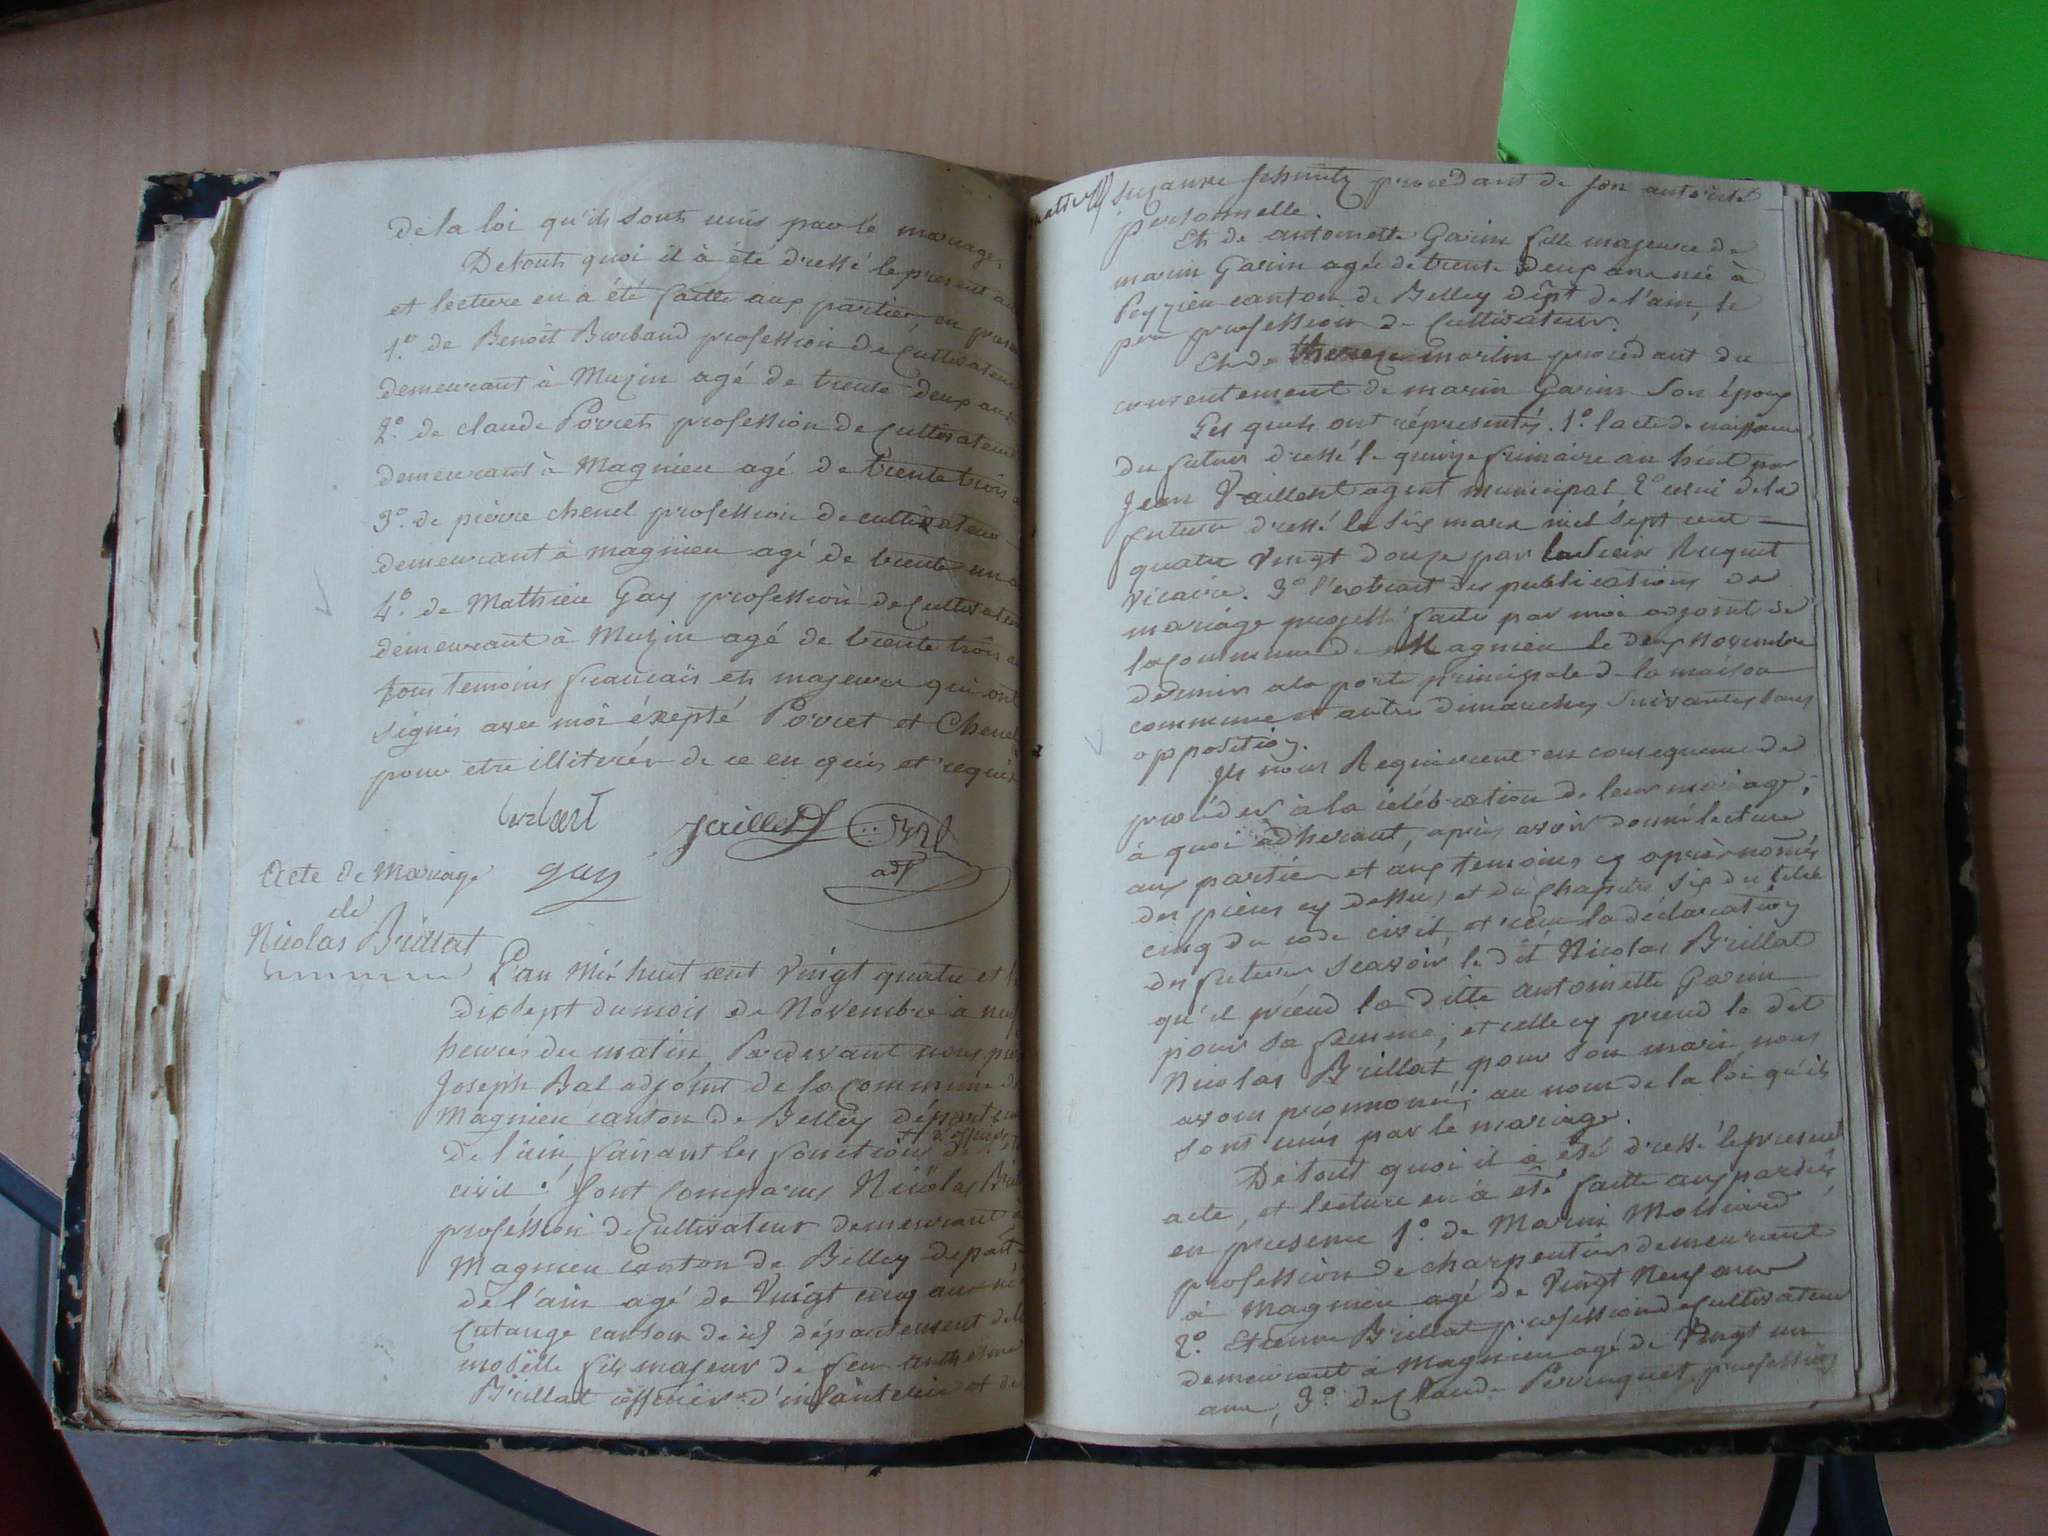 De la loi qu'ils sont unis par le mariage.
De tout quoi il à été dressé le present
et lecture en a été faitte aux parties, en
1.º de Benoit Burband profession de Cultivateur
demeurant à Muzin agé de trente deux ans
2.º de claude Povret profession de Cultivateur
demeurant à Magnieu agé de trente trois
3.º de pierre chenel profession de cultivateur
demeurant à magnieu agé de trente un
4.º de Mathieu Gay profession de Cultivateur
demeurant à Muzin agé de trente trois
tous temoins francais et majeurs qui ont
signés avec moi éxepté Povret et Chenel
pour etre illitirés de ce enquis et requis
Jaillet
adj
gay
Acte de Mariage
de
Nicolas Brillat
L'an Mil huit cent Vingt quatre et
dixsept du mois de Novembre à neuf
heures du matin, Pardevant nous
Joseph Bal adjoint de la Commune de
Magnieu canton de Belley
de l'ain, faisant les fonctions
civil. Sont Comparus Nicolas
proféssion de Cultivateur demeurant
Magnieu canton de Belley depart
de l'ain agé de Vingt cinq ans né
Cutange canton de département de la
moselle fils majeur de feu
Brillat officier d'infanterie et de
suzanne schmitz procédant de son autorité
personnelle.
Et de antoinette Garin fille majeure de
marin Garin agée de trente deux ans née à
Peyzieu canton de Belley dépt de l'ain, le
père profession de Cultivateur.
Et de therese martin procédant du
consentement de marin Garin son époux
Les quels ont réprésentés. 1º l'acte de naissance
du futur dressé le quinze frimaire an huit par
Jean Vaillent agent municipal, 2º celui de la
future dressé le six mars mil sept cent
quatre vingt douze par le Ruquet
vicaire. 3º l'extrait des publications de
mariage projetté faitte par moi adjoint de
la commune de Magnieu le deux Novembre
dernier a la porte principale de la maison
commune et autre dimanches suivantes sans
opposition.
Ils nous Requierent en consequence de
procéder à la célébration de leur mariage;
à quoi adherant, après avoir donné lecture
aux parties et aux temoins cy après només
des pièces cy dessus, et du chapitre six du titre
cinq du code civil, et reçu la déclaration
des futurs scavoir le dit Nicolas Brillat
qu'il prend la ditte antoinette Garin
pour sa femme, et celle cy prend le dit
Nicolas Brillat pour son mari, nous
avons prononcé; au nom de la loi qu'ils
sont unis par le mariage.
De tout quoi il a été dressé le present
acte, et lecture en à été faitte aux parties
en presence 1º. de Marin Molliard
profession de charpentier demeurant
à Magnieu agé de Vingt neuf ans
2º. Etienne Brillat profession de Cultivateur
demeurant à Magnieu agé de Vingt un
ans, 3º. de Claude Perinquet profession